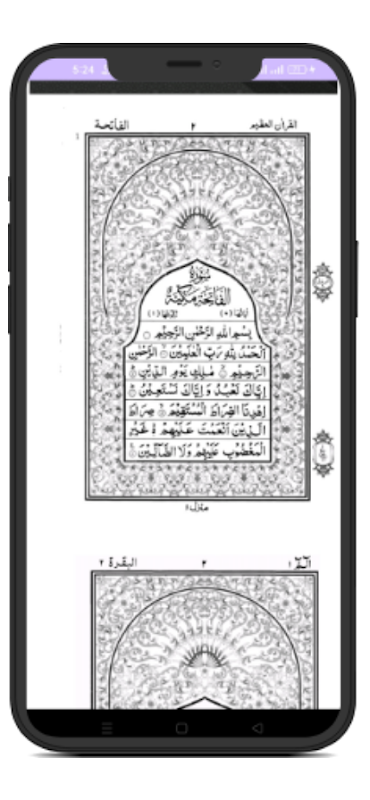 5:24
القرآن العظيم ٢ الفاتحة
سُوْرَةُ
الْفَاتِحَةِ مَكِّيَّةٌ
بِسْمِ اللهِ الرَّحْمٰنِ الرَّحِيْمِ
اَلْحَمْدُ لِلّٰهِ رَبِّ الْعٰلَمِيْنَ ۙ الرَّحْمٰنِ
الرَّحِيْمِ ۙ مٰلِكِ يَوْمِ الدِّيْنِ ۭ
اِيَّاكَ نَعْبُدُ وَ اِيَّاكَ نَسْتَعِيْنُ ۭ
اِهْدِنَا الصِّرَاطَ الْمُسْتَقِيْمَ ۙ صِرَاطَ
الَّذِيْنَ اَنْعَمْتَ عَلَيْهِمْ ۙ غَيْرِ
الْمَغْضُوْبِ عَلَيْهِمْ وَلَا الضَّآلِّيْنَ
منزل ١
الٓمّٓ ١ ٢ البقرة ٢